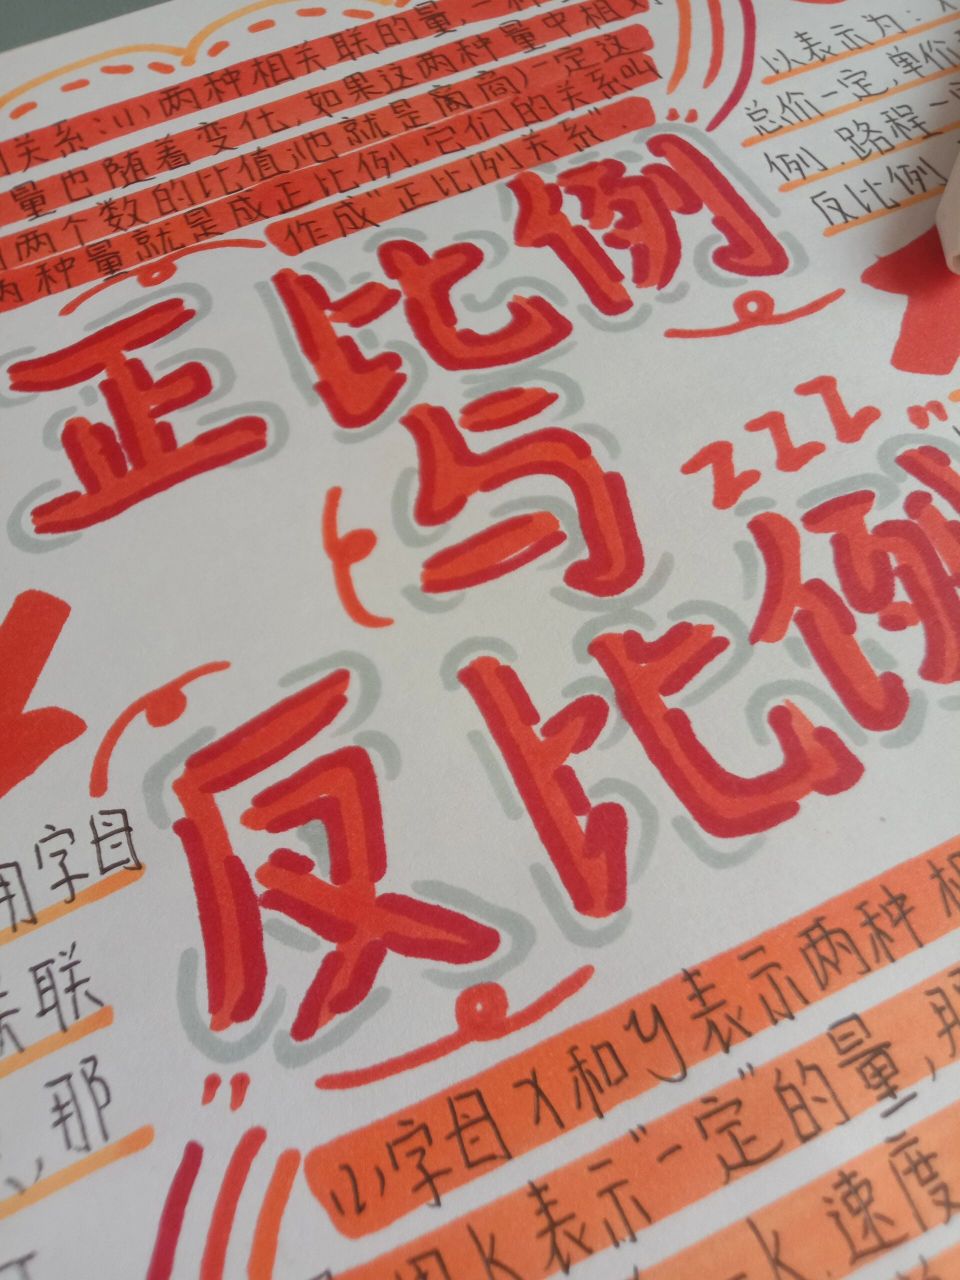 关系:(1)两种相关联的量,一种
量也随着变化,如果这两种量中相对
两个数的比值(也就是商高)一定这
两种量就是成正比例,它们的关系叫
作成"正比例关系".
以表示为:
总价一定,单价
例.路程一
反比例
正比例
与
反比例
用字母
关联
,那
(2)字母x和y表示两种相
用k表示"一定"的量,那
k.速度